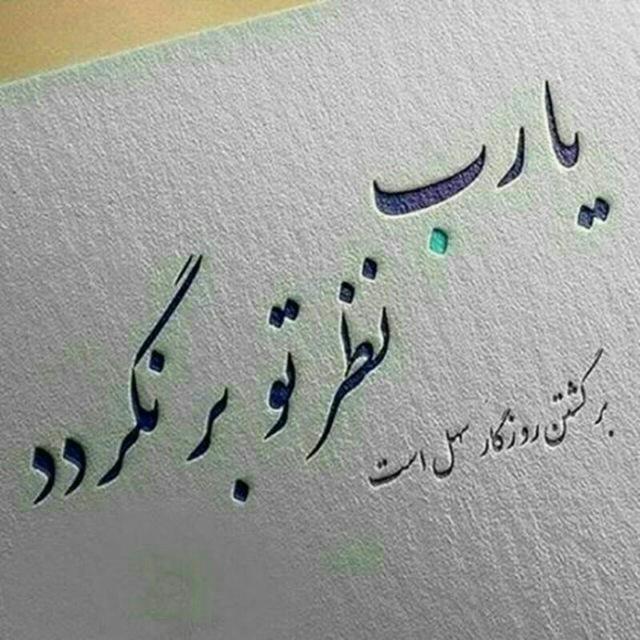 یارب
نظر تو بر نگردد
برگشتن روزگار سهل است